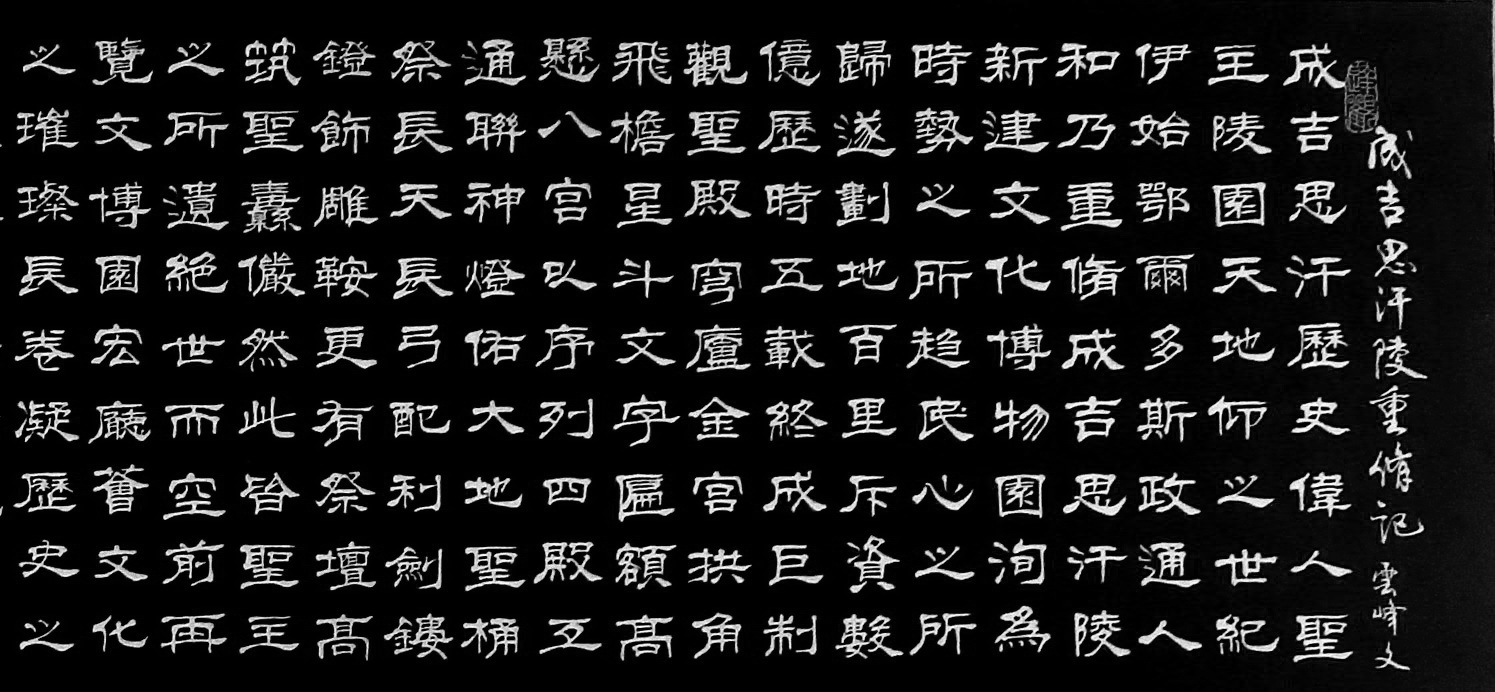 成吉思汗陵重脩記 雲峰文
成吉思汗歷史偉人聖
主陵園天地仰之世紀
伊始鄂爾多斯政通人
和乃重脩成吉思汗陵
新建文化博物園洵為
時勢之所趋民心之所
歸遂劃地百里斥資數
億歷時五載終成巨制
觀聖殿穹廬金宮拱角
飛檐星斗文字匾額高
懸八宮以序列四殿互
通聯神燈佑大地聖桶
祭長天長弓配利劍鏤
鐙飾雕鞍更有祭壇高
筑聖纛儼然此皆聖主
之所遺絕世而空前再
覽文博園宏廳薈文化
之璀璨長卷凝歷史之